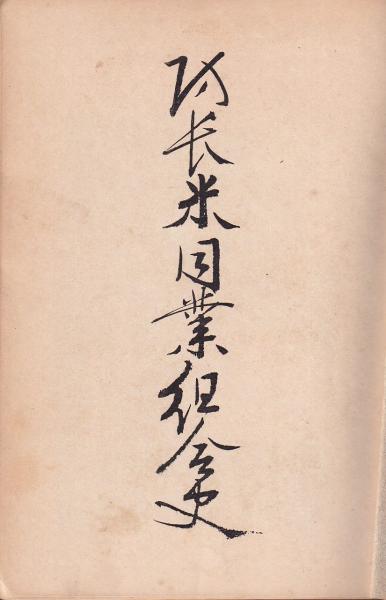 防長米同業組合史